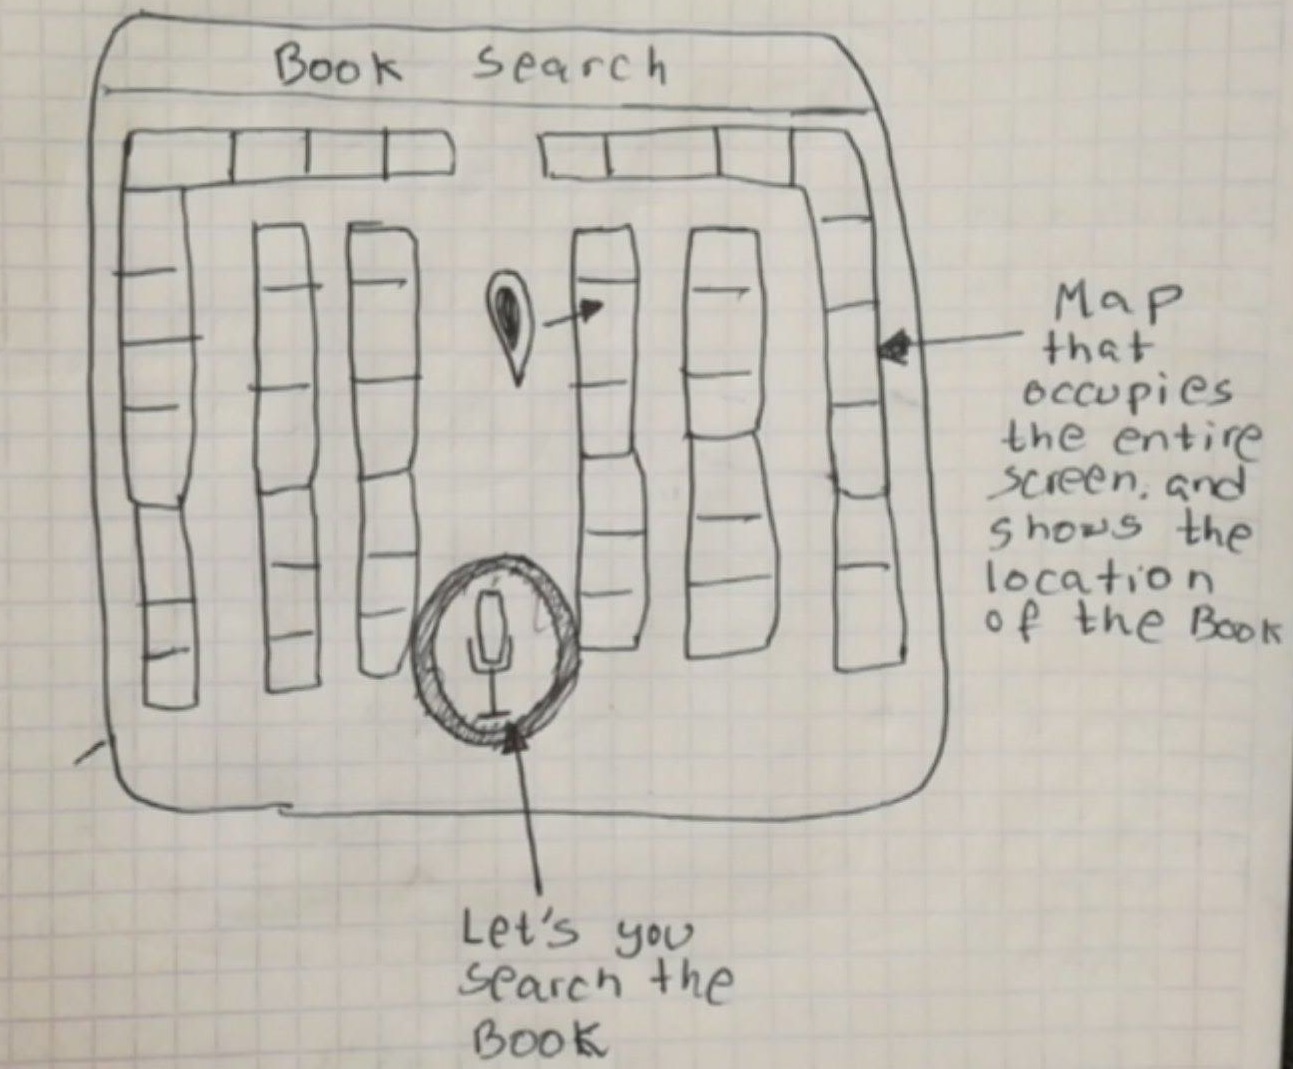 Book search
Map
that
occupies
the entire
screen, and
shows the
location
of the Book
Let's you
search the
Book